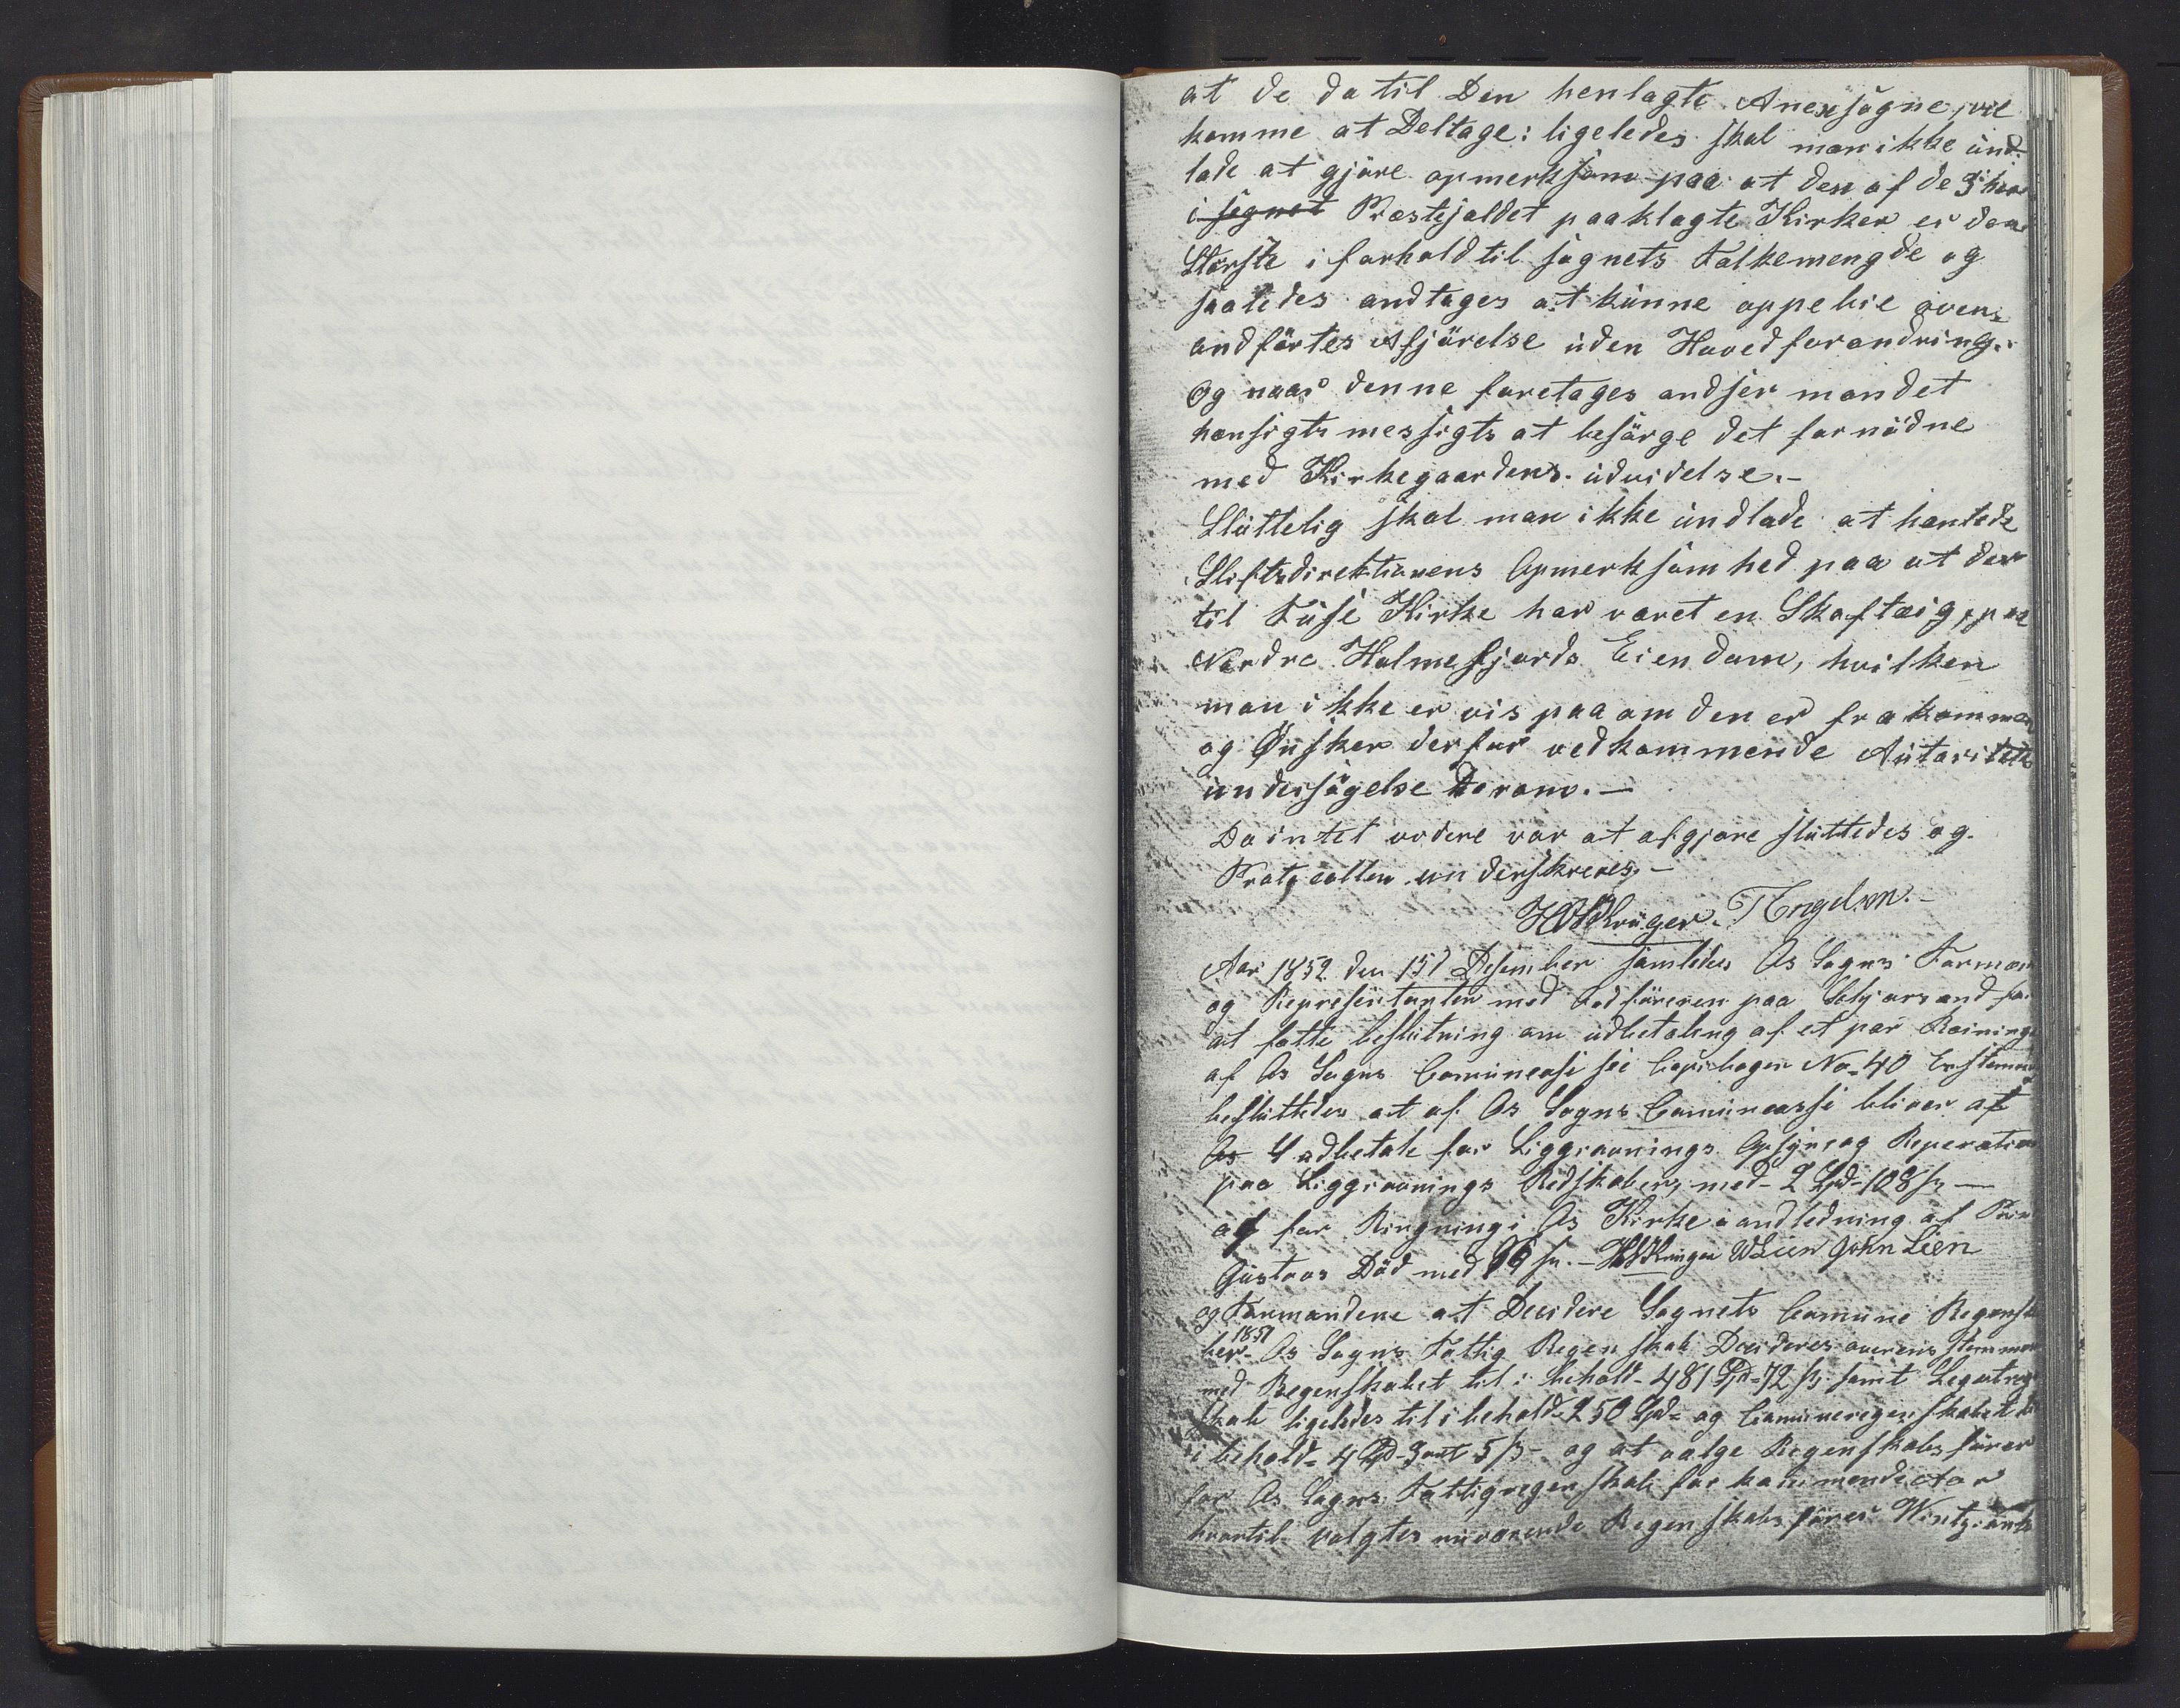 at de da til Den henlagte Anexsogne, vil
komme at Deltage: ligeledes skal man ikke und-
lade at gjöre opmerksom paa at den af de 3 her
i segnet Præstejaldet paaklagte Kirker er den
Störste i forhold til sognets Folkemengde og
saaledes andtages at kunne oppebie oven-
andförtes Afjörelse uden Hovedforandring.
Og naar denne foretages andser man det
hensigtsmessigts at besörge det fornödne
med Kirkegaardens udvidelse.-
Sluttelig skal man ikke undlade at henlede
Stiftsdirektionens Opmerksomhed paa at der
til Fuse Kirke har været en Skoftæig, paa
Nordre Holmefjords Eiendom, hvilken
man ikke er vis paa om den er frakommen
og Önsker derfor vedkommende Autoritets
undersögelse Derom.-
Da intet videre var at afgjøre sluttedes og
Protocollen underskreves.-
HDKrüger. TEngelsen.-
Aar 1852 den 15d Desember samledes Os Sogns Formæn
og Representanter med Fodföreren paa Ulvjarsand for
at fatte beslutning om udbetaling af et par Reininger
af Os Sogns Comunecasse see Copiebogen No 40 Enstemmig
besluttedes at af Os Sogns Comunecasse bliver at
Os 4 udbetale for Liggravnings Opsyns og Reperation
paa Liggravnings Redskaber, med 2 Spd 108 s -
og for Ringning i Os Kirke i andledning af Prin
Gustavs Död med 96 s. - HDKrüger WLien John Lien
og Formandene at Desidere Sognets Comune Regenska
ber 1851 Os Sogns Fattig Regenskab Desideres overensstemmen
med Regenskabet til i behold 481 Spd 72 s samt Legatreg
skab ligeledes til i behold 250 Spd og Comuneregenskabet til
i behold 4 Spd 3 ort 5 s og at valge Regenskabsförer
for Os Sogns Fattigregenskab for kommende Aar
hvortil valgtes nuværende Regenskabsförer Wintz. ants